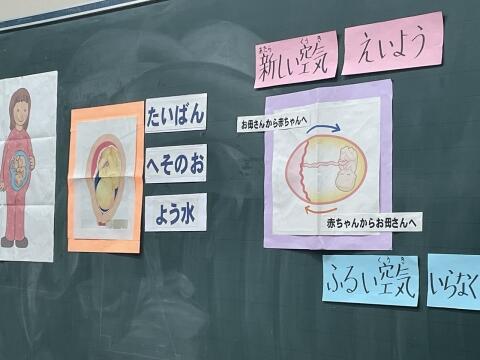 新しい空気
あたら くうき
えいよう
たいばん
へそのお
よう水
お母さんから赤ちゃんへ
赤ちゃんからお母さんへ
ふるい空気
くうき
いらなく